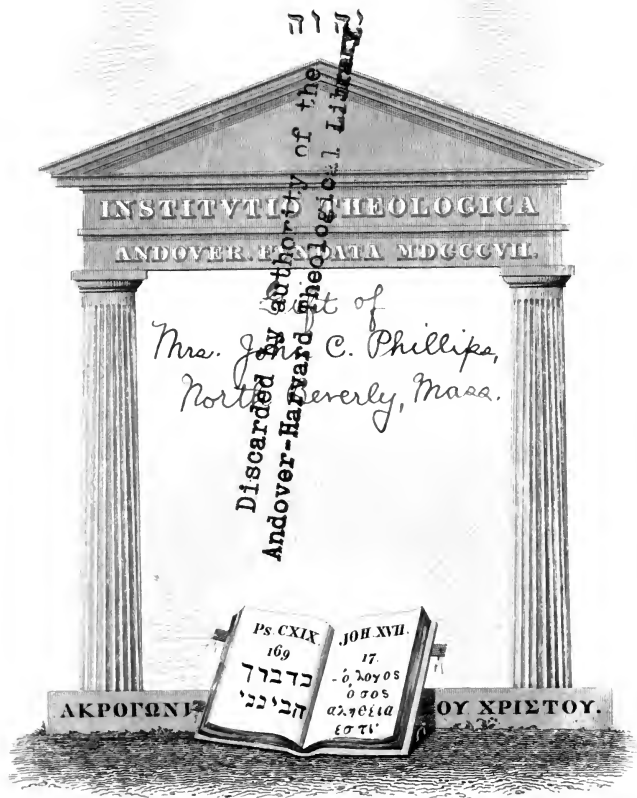 יהוה
INSTITVTIO THEOLOGICA
ANDOVER. FUNDATA MDCCCVII.
Gift of
Mrs. John C. Phillips,
North Beverly, Mass.
Discarded by authority of the
Andover-Harvard Theological Library
Ps. CXIX.
169
כדברך
הבינני
JOH. XVII.
17.
-ὁ λογος
ὁ σος
αληθεια
εστι
ΑΚΡΟΓΩΝΙ
ΟΥ ΧΡΙΣΤΟΥ.